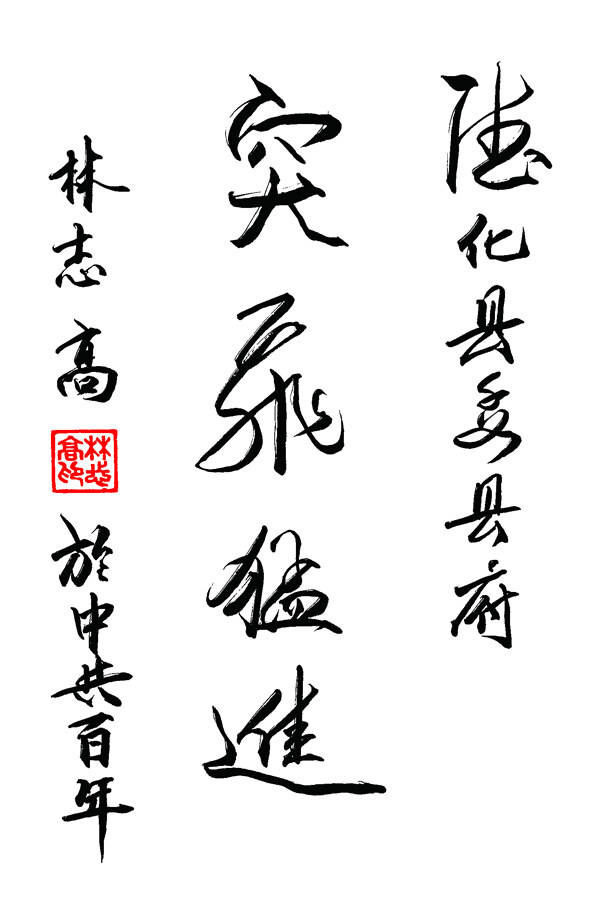 德化县委县府
突飛猛進
林志高
林志高印
於中共百年